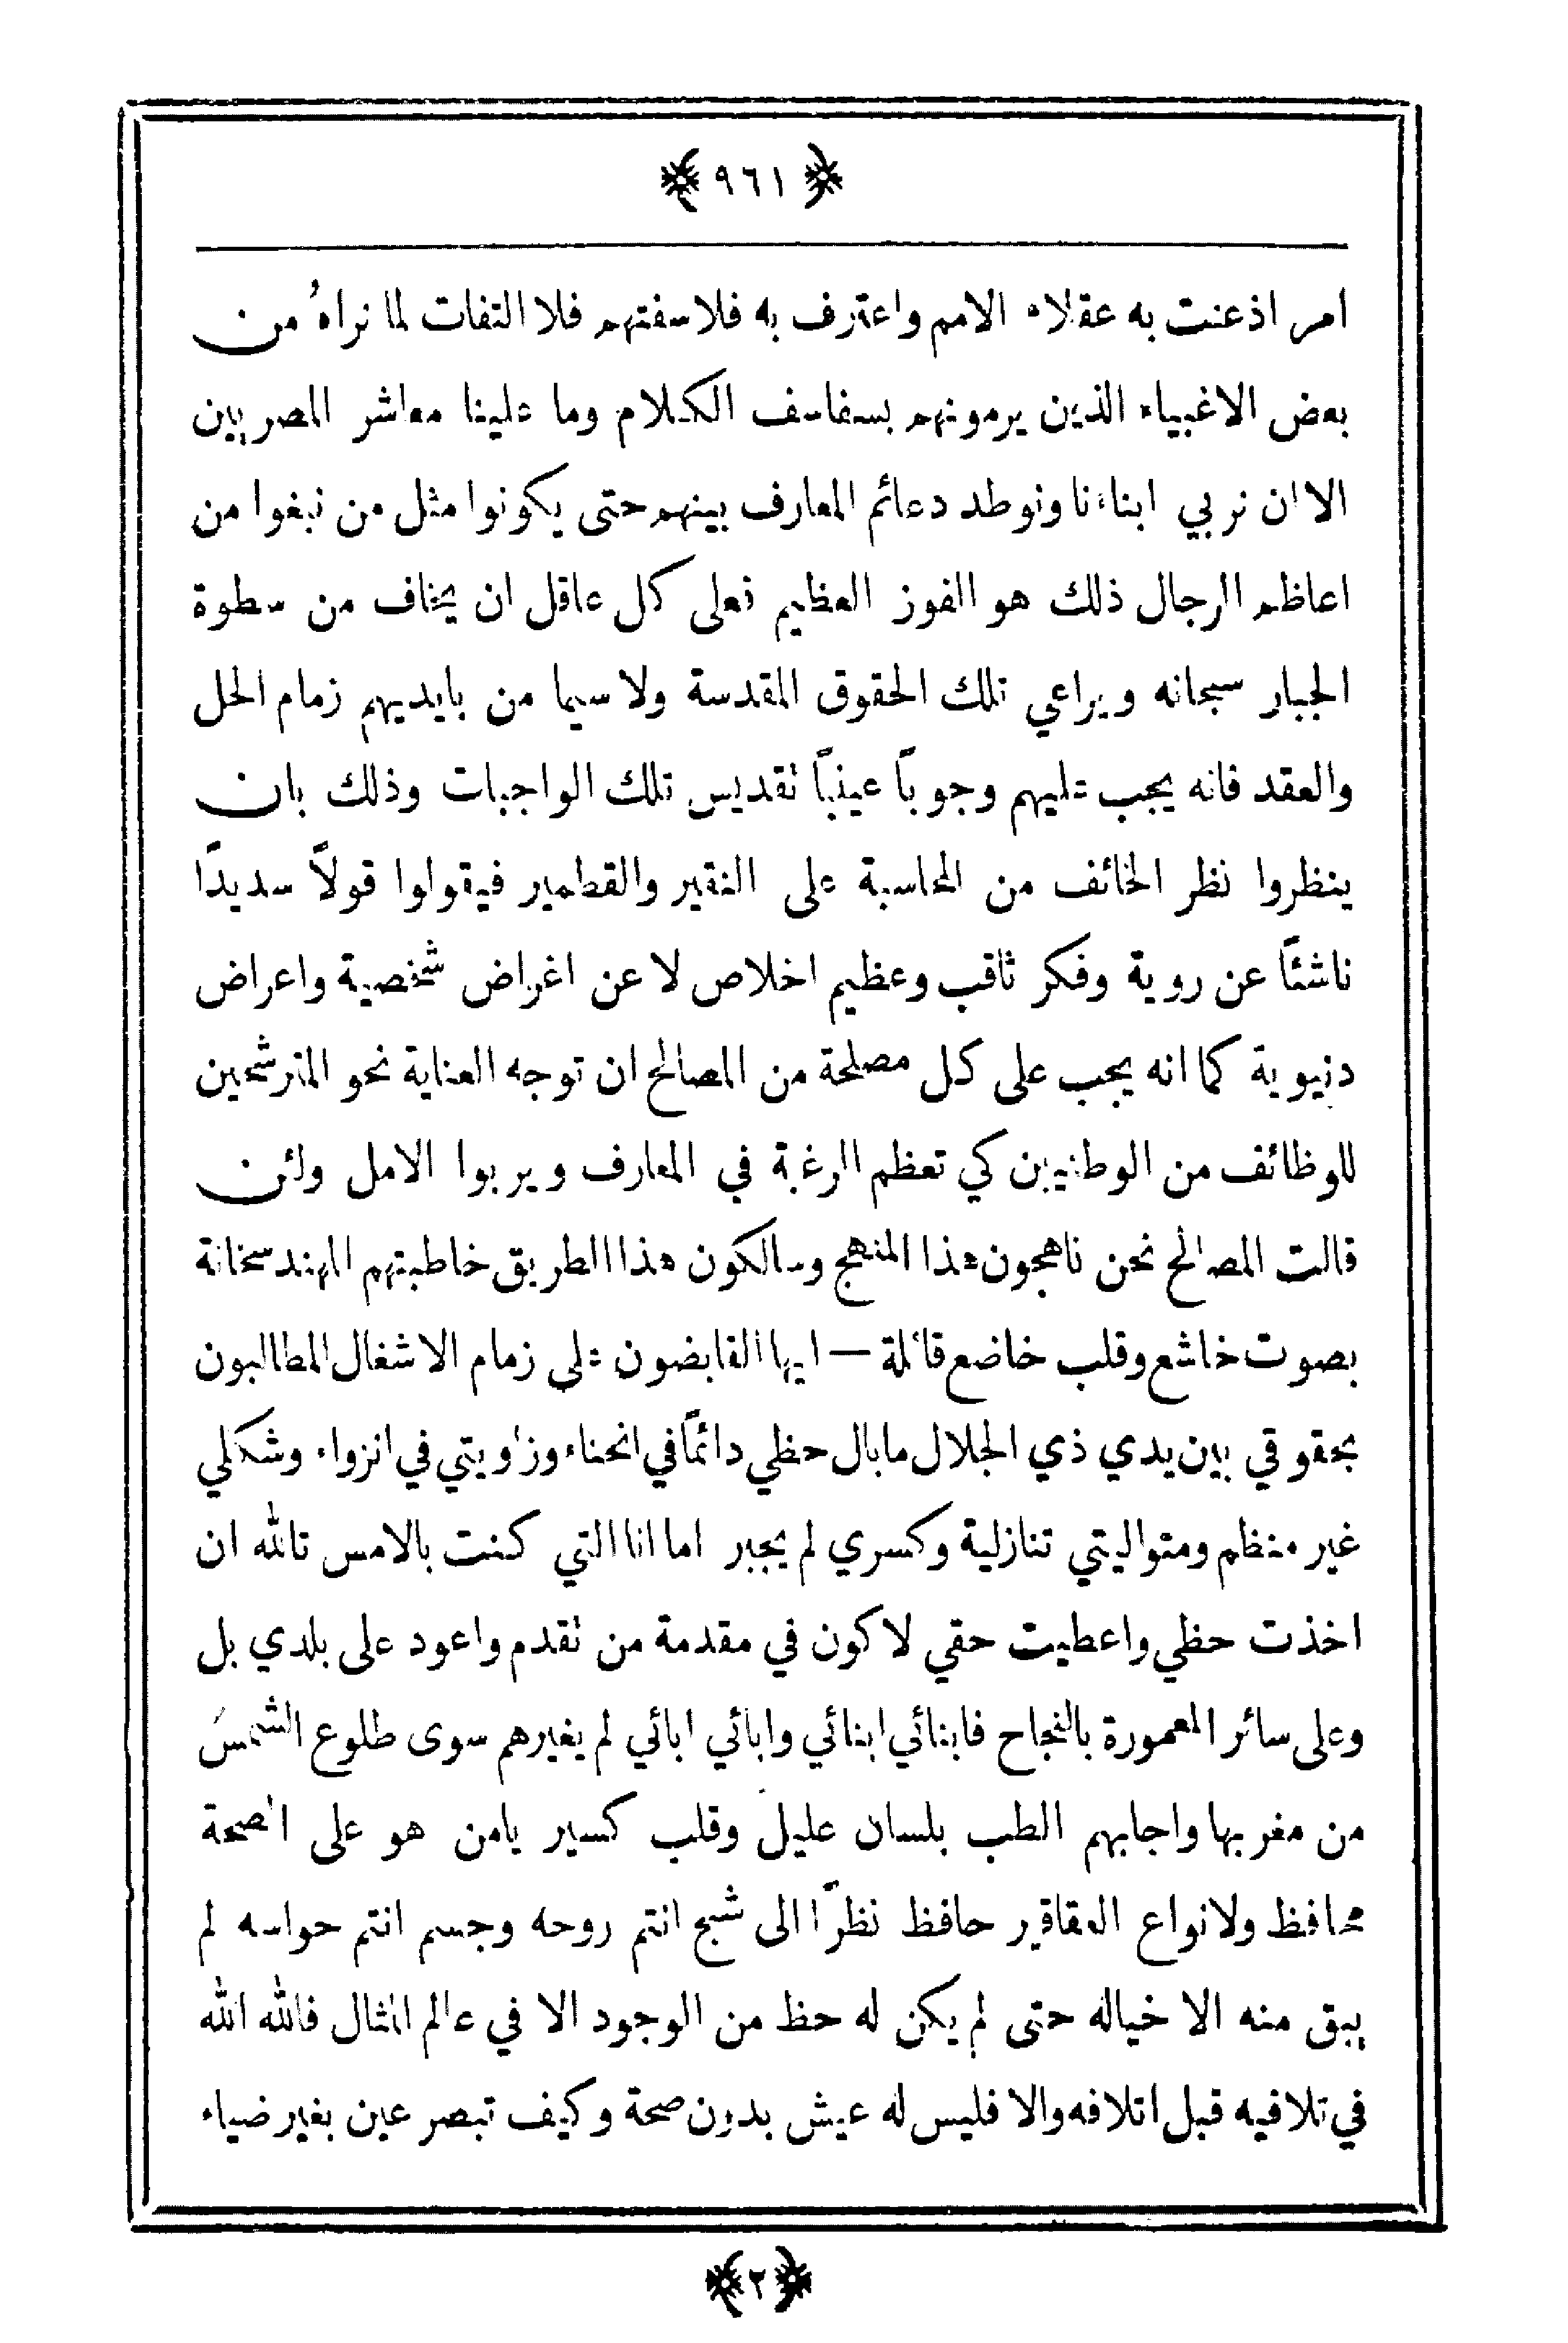 ﴿ ٩٦١ ﴾
امر اذعنت به عقلاء الامم واعترف به فلاسفتهم فلا التفات لما نراهُ من
بعض الاغبياء الذين يرمونهم بسفاسف الكلام وما علينا معاشر المصريين
الا ان نربي ابناءنا ونوطد دعائم المعارف بينهم حتى يكونوا مثل من نبغوا من
اعاظم الرجال ذلك هو الفوز العظيم فعلى كل عاقل ان يخاف من سطوة
الجبار سبحانه ويراعي تلك الحقوق المقدسة ولا سيما من بايديهم زمام الحل
والعقد فانه يجب عليهم وجوبًا عينيًا نقديس تلك الواجبات وذلك بان
ينظروا نظر الخائف من المحاسبة على النقير والقطمير فيقولوا قولاً سديدًا
ناشئًا عن روية وفكر ثاقب وعظيم اخلاص لا عن اغراض شخصية واعراض
دنيوية كما انه يجب على كل مصلحة من المصالح ان توجه العناية نحو المترشحين
للوظائف من الوطنيين كي تعظم الرغبة في المعارف ويربوا الامل ولئن
قالت المصالح نحن ناهجون هذا المنهج وسالكون هذا الطريق خاطبتهم المهندسخانة
بصوت خاشع وقلب خاضع قائلة — ايها القابضون على زمام الاشغال المطالبون
بحقوقي بين يدي ذي الجلال ما بال حظي دائمًا في انحناء وزاويتي في انزواء وشكلي
غير منظم ومتواليتي تنازلية وكسري لم يجبر اما انا التي كنت بالامس تالله ان
اخذت حظي واعطيت حقي لاكون في مقدمة من نقدم واعود على بلدي بل
وعلى سائر المعمورة بالنجاح فابنائي ابنائي وابائي ابائي لم يغيرهم سوى طلوع الشمس
من مغربها واجابهم الطب بلسان عليل وقلب كسير يامن هو على الصحة
محافظ ولانواع العقاقير حافظ نظرًا الى شبح انتم روحه وجسم انتم حواسه لم
يبق منه الا خياله حتى لم يكن له حظ من الوجود الا في عالم المثال فالله الله
في تلافيه قبل اتلافه والا فليس له عيش بدون صحة وكيف تبصر عين بغير ضياء
﴿ ٢ ﴾